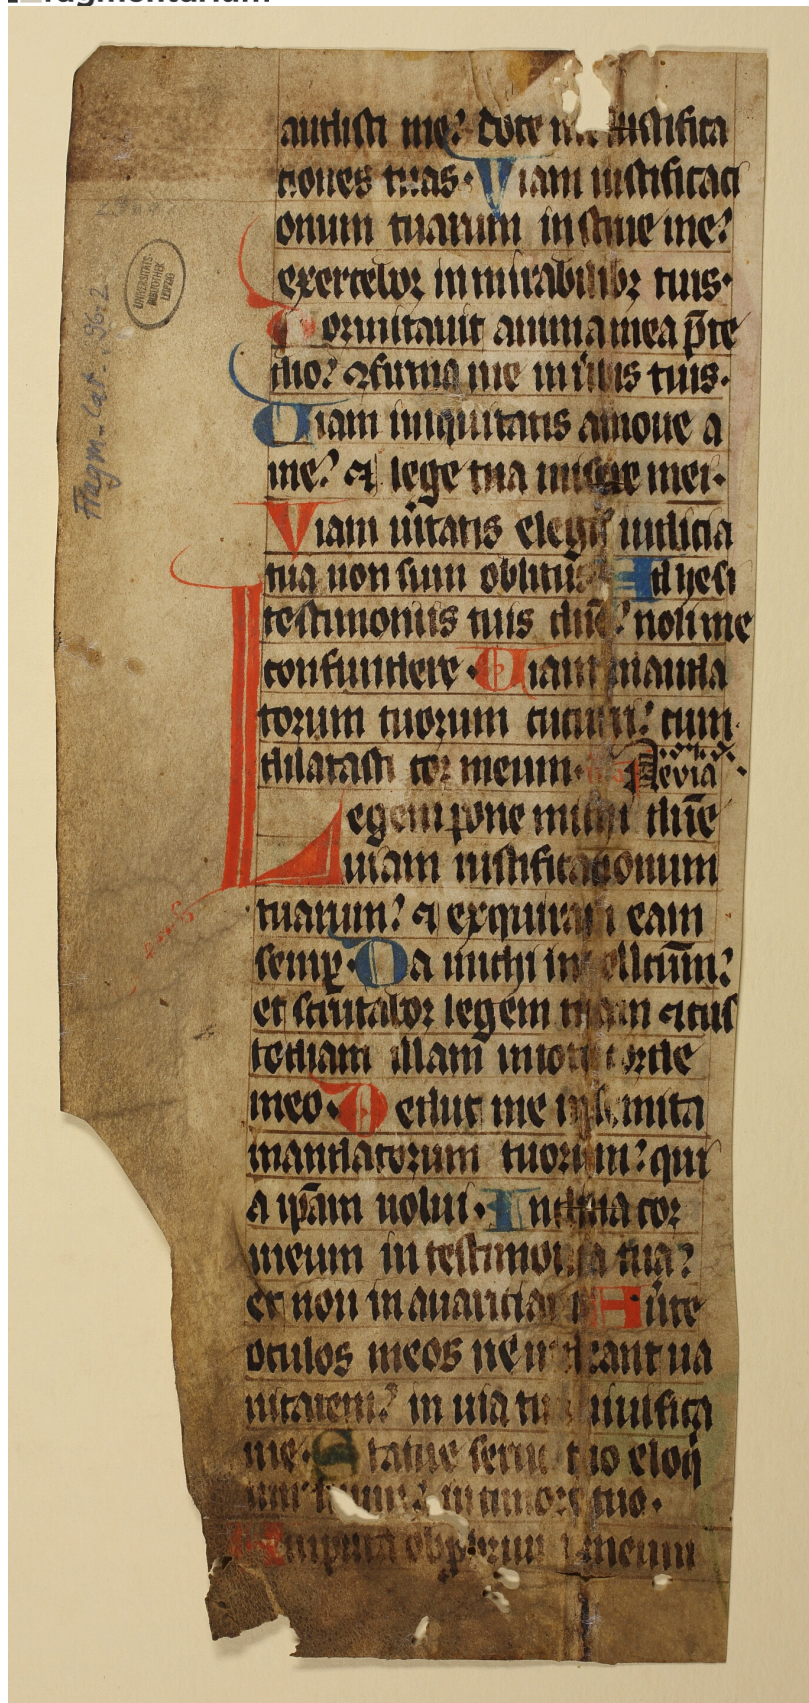 audisti me? doce me iustifica
tiones tuas. Viam iustificaci
onum tuarum instrue me?
exercebor in mirabilibꝫ tuis.
Dormitauit anima mea p̄re
dio? ꝯfirma me in ūbis tuis.
Uiam iniquitatis amoue a
me? et lege tua miserere mei.
Viam ūitatis elegi? iudicia
tua non sum oblitus. Adhesi
testimoniis tuis dn̄e? noli me
confundere. Uiam manda
torum tuorum cucurri? cum
dilatasti cor meum.
Legem pone michi dn̄e
uiam iustificationum
tuarum? et exquiram eam
semꝑ. Da michi intellcūm?
et scrutabor legem tuam et cus
todiam illam in toto corde
meo. Deduc me in semita
mandatorum tuorum? qui
a ip̄am uolui. Inclina cor
meum in testimonia tua?
et non in auariciam. Aūte
oculos meos ne uideant ua
nitatem? in uia tua uiuifica
me. Statue seruo tuo eloq̄
um tuum? in timore tuo.
Amputa obꝓbrium meum
UNIVERSITÄTS-
BIBLIOTHEK
LEIPZIG
Fragm. lat. 96.2